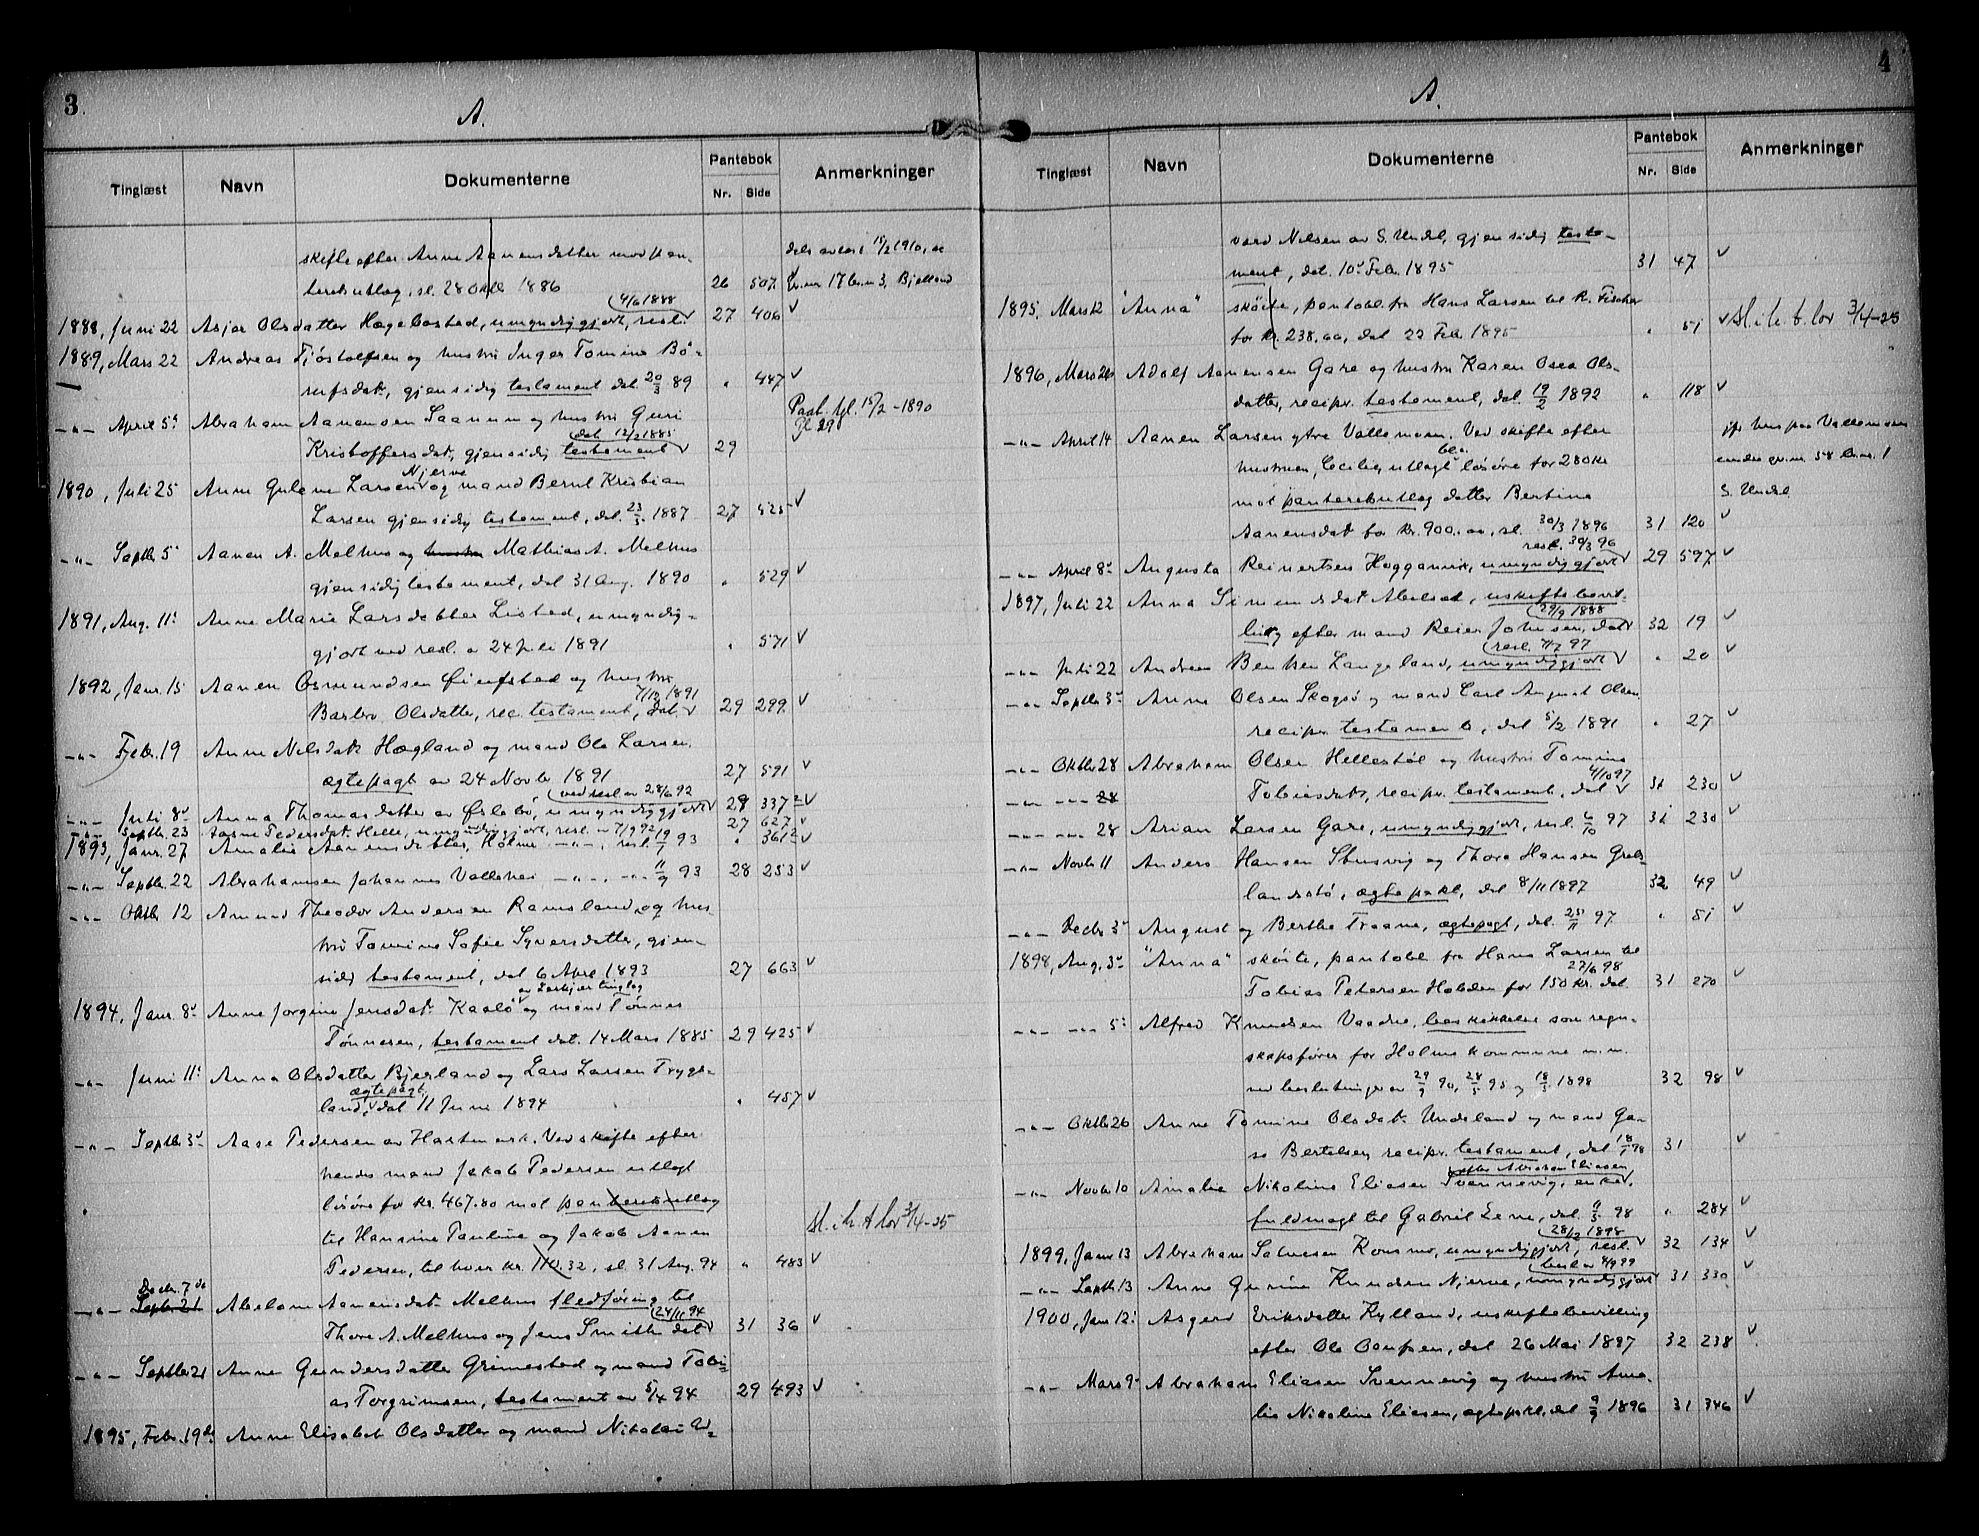 3.
A.
Tinglæst Navn Dokumenterne Pantebok Nr. Side Anmerkninger
skifte efter Anne Aanensdatter mod pan-
terets utlæg, sl. 28 Oktb 1886 26 507.
15/2 1910, se
Gr.nr. 17 br.nr. 3, Bjelland
1888, Juni 22 Asjer Olsdatter Hægebostad, umyndiggjort, resl. 4/6 1888 27 406 v
1889, Mars 22 Andreas Tjøstolfsen og hustru Inger Tomine Bø-
rufsdat., gjensidig testament dat. 20/3 89 " 447 v
-"- April 5 Abraham Aanensen Saanum og hustru Guri
Kristoffersdat., gjensidig testament dat. 12/2 1885 29
Paat. tgl. 15/2 - 1890
1890, Juli 25 Anne Guline Larsen Njerve og mand Bernt Kristian
Larsen gjensidig testament, dat. 23/5 1887 27 525 v
-"- Septbr 5 Aanen A. Melhus og hustru Mathias A. Melhus
gjensidig testament, dat 31 Aug. 1890 " 529 v
1891, Aug. 11 Anne Marie Larsdatter Listad, umyndig-
gjort ved resl. a 24 Juli 1891 " 571 v
1892, Janr. 15 Aanen Osmundsen Øiufstad og hustru
Barbro Olsdatter, rec. testament, dat. 7/12 1891 29 299. v
-"- Febr. 19 Anne Nilsdatt. Høgland og mand Ole Larsen
ægtepagt av 24 Novbr 1891 27 591 v
-"- Juli 8 Anna Thomasdatter av Øslebø, umyndiggjort ved resl. av 28/6 92 29 337 v
-"- Septb. 23 Aasne Pedersdat. Helle, umyndiggjort, resl. a 7/9 92 27 627 v
1893, Janr. 27 Amalie Aanensdatter, Holme -"-, resl. 19/1 93 " 361 v
-"- Septbr. 22 Abrahamsen Johannes Vallehei -"-, -"- 11/9 93 28 253 v
-"- Oktb. 12 Amund Theodor Andersen Ramsland og hus-
tru Tomine Sofie Syversdatter, gjen-
sidig testament, dat 6 April 1893 27 663 v
1894, Janr. 8 Anne Jorgine Jensdat. Kaalø av Leskjær tinglag og mand Tønnes
Tønnesen, testament dat. 14 Mars 1885 29 425 v
-"- Juni 11 Anna Olsdatter Bjerland og Lars Larsen Trygs-
land, ægtepagt, dat 11 Juni 1894 " 457 v
-"- Septbr 3 Aase Pedersen av Hartmark. Ved skifte efter
hendes mand Jakob Pedersen utlagt
løsøre for kr. 467.80 mot panteretsutlæg
til Hansine Pauline og Jakob Aanen
Pedersen, til hver kr. 110.32, sl. 31 Aug. 94 " 483 v
Sl. i h. t. lov 3/4-25
-"- Decbr. 7 de Septbr. 21 Abelone Aanensdat. Melhus fledføring til
Thore A. Melhus og Jens Smith dat 24/11 94 31 36 v
-"- Septbr 21 Anne Gundersdatter Grimestad og mand Tobi-
as Torgrimsen, testament av 5/4 94 29 493 v
1895, Febr. 19 de Anne Elisabet Olsdatter og mand Nikolai Ed-

4
A.
Tinglæst Navn Dokumenterne Pantebok Nr. Side Anmerkninger
vard Nilsen av S. Undal, gjensidig testa-
ment, dat. 10 Feb. 1895 31 47 v
1895, Mars 12 "Anna" skøite, pantobl. fra Hans Larsen til R. Fischer
for kr. 238.00, dat 22 Feb. 1895 " 51 v Sl. i h. t. lov 3/4-25
1896, Mars 26 Adolf Aanensen Gare og hustru Karen Osea Ols-
datter, recipr. testament, dat. 19/2 1892 " 118 v
-"- April 14 Aanen Larsen ytre Vallemoen. Ved skifte efter
hustruen, Cecilie, utlagt bl.a. løsøre for 280 kr
mot panteretsutlæg datter Bertine
Aanensdat. for kr. 900.00, sl. 30/3 1896 31 120 v
jfr. hus paa Vallemoen
under gr.nr. 58 br.nr. 1
S. Undal
-"- April 8 Augusta Reinertsen Hoggamvik, umyndiggjort resl. 30/3 96 29 597 v
1897, Juli 22 Anna Simensdat. Abelset, uskiftebevil-
ling efter mand Reier Johnsen, dat 29/9 1888 32 19 v
-"- Juli 22 Andrea Bentsen Langeland, umyndiggjort resl. 7/7 97 " 20 v
-"- Septbr 3 Anne Olsen Skogsø og mand Carl August Olsen
recipr. testament, dat 5/2 1891 " 27 v
-"- Oktbr 28 Abraham Olsen Hellestøl og hustru Tomine
-"- -"- 28 Tobiasdat., recipr. testament, dat. 4/10 97 31 230 v
-"- -"- 28 Arian Larsen Gare, umyndiggjort, resl. 6/10 97 31 230 v
-"- Novbr 11 Anders Hansen Stusvig og Thora Hansen Grøs-
landsstø, ægtepakt, dat 8/11 1897 32 49 v
-"- Decbr 3 August og Berthe Traane, ægtepagt, dat. 25/11 97 " 51 v
1898, Aug. 3 "Anna" skøite, pantobl. fra Hans Larsen til
Tobias Petersen Holden for 150 kr. dat 27/6 98 31 270 v
-"- -"- 5 Alfred Knudsen Vaadne, beskikkelse som regn-
skapsfører for Holme kommune m.m.
ved beslutninger av 29/9 90, 28/5 95 og 18/5 1898 32 98 v
-"- Oktbr 26 Anne Tomine Olsdat. Undeland og mand Ga-
so Bertelsen recipr. testament, dat. 18/1 98 31 v
-"- Novbr 10 Amalie Nikoline Eliasen Svennevig, enke efter Abraham Eliasen,
fuldmagt til Gabriel Lene, dat. 11/5 98 " 284 v
1899, Janr 13 Abraham Salvesen Konsmo, umyndiggjort, resl. 28/12 1898 32 134 v
-"- Septbr 13 Anne Gurine Knudsen Njerve, umyndiggjort besl. av 4/9 99 31 330 v
1900, Jan 12 Asgerd Eriksdatter Kylland, uskiftebevilling
efter Ole Olufsen, dat 26 Mai 1887 32 238 v
-"- Mars 9 Abraham Eliasen Svennevig og hustru Ama-
lie Nikoline Eliasen, ægtepakt, dat 9/9 1896 31 346 v